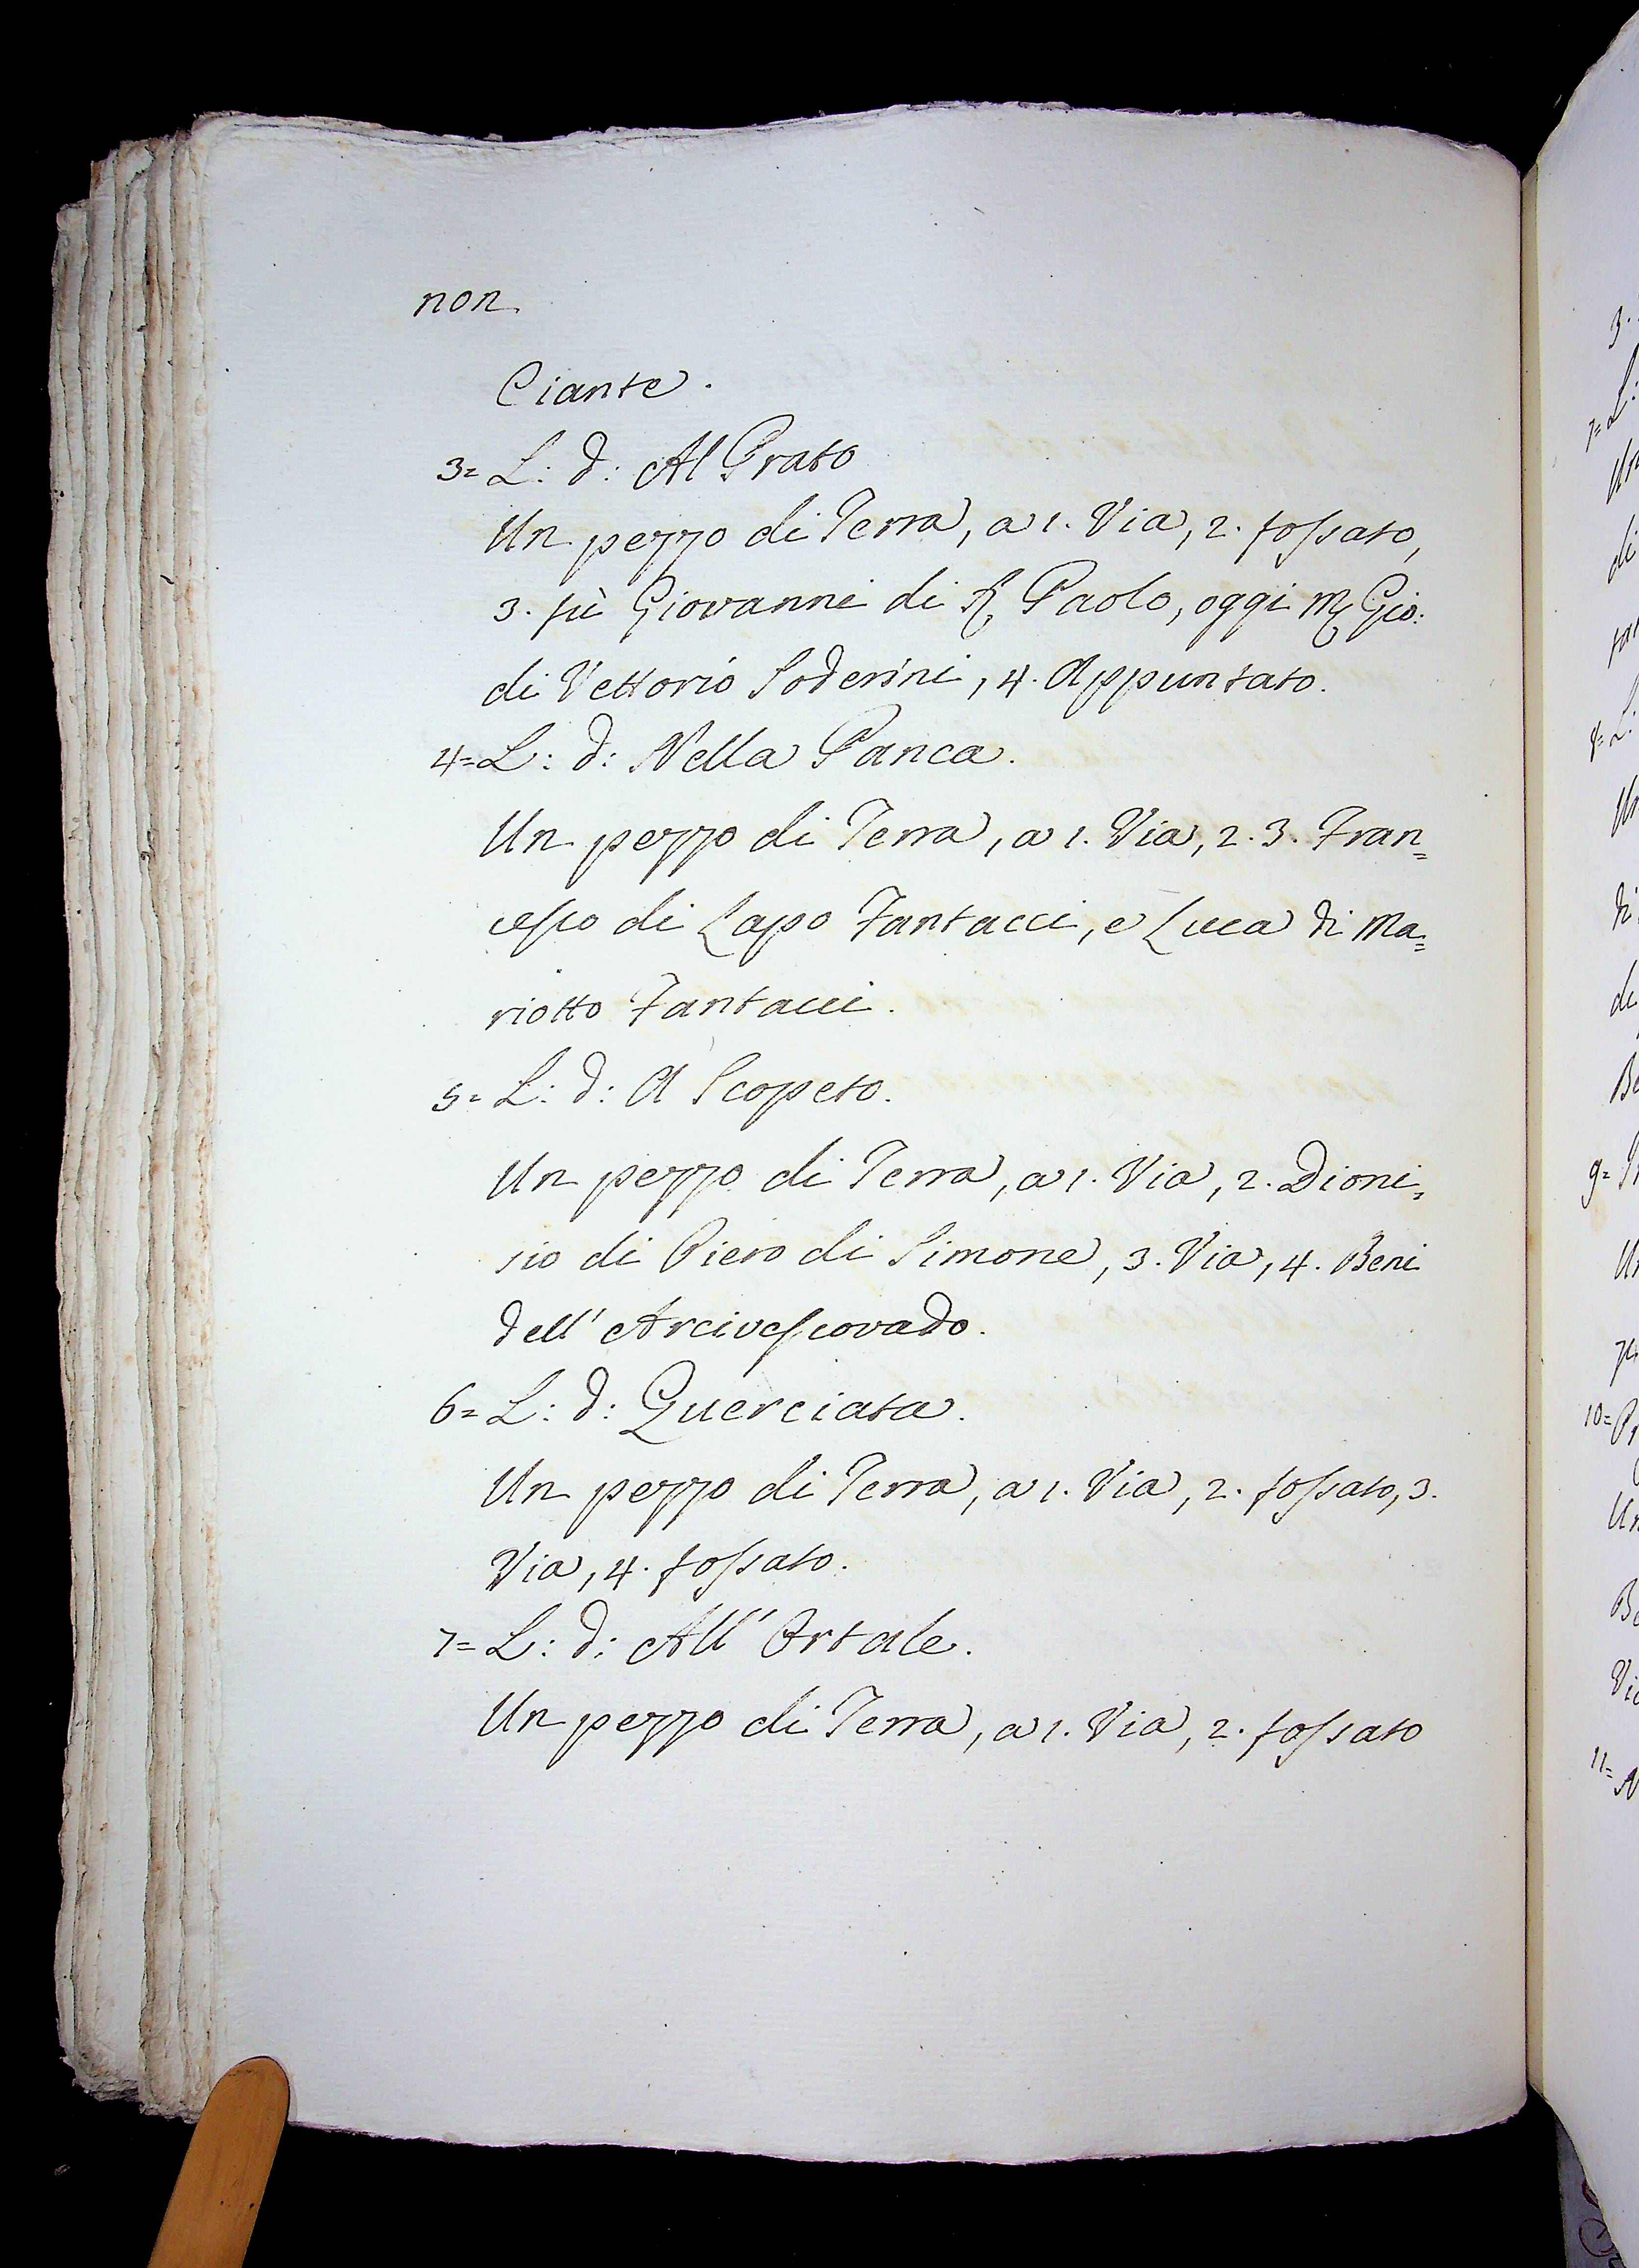 non
Ciante.
3= L: d: Al Prato
Un pezzo di Terra, a 1. Via, 2. fossato,
3. fù Giovanni di Paolo, oggi Gio:
di Vettorio Soderini, 4. Appuntato.
4= L: d: Nella Panca.
Un pezzo di Terra, a 1. Via, 2. 3. Fran=
cesco di Lapo Fantacci, e Luca di Ma=
riotto Fantacci.
5= L: d: A Scopeto.
Un pezzo di Terra, a 1. Via, 2. Dioni=
sio di Piero di Simone, 3. Via, 4. Beni
dell' Arcivescovado.
6= L: d: Querciata.
Un pezzo di Terra, a 1. Via, 2. fossato, 3.
Via, 4. fossato.
7= L: d: All' Ortale.
Un pezzo di Terra, a 1. Via, 2. fossato